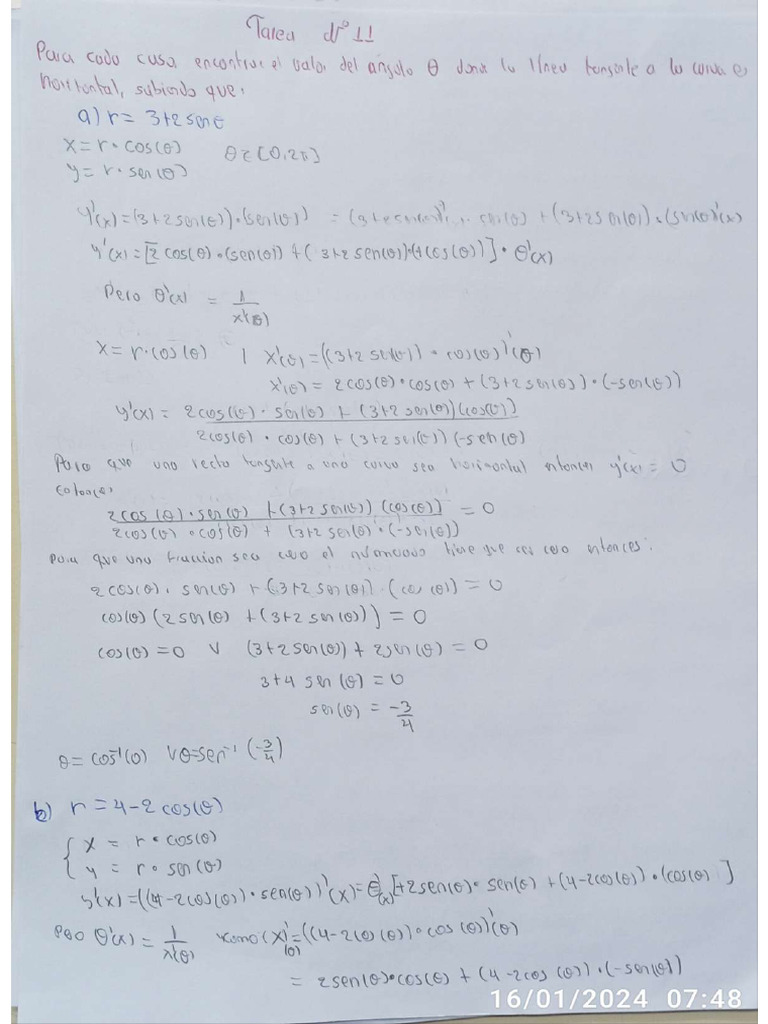 Tarea N° 11
Para cada caso, encontrar el valor del angulo θ donde la línea tangente a la curva es
horizontal, sabiendo que:
a) r = 3+2senθ
x = r · cos(θ)   θ ∈ [0,2π]
y = r · sen(θ)
y'(x) = (3+2sen(θ)) · (sen(θ)) = · sen(θ) + (3+2sen(θ)) · (sen(θ))'(x)
y'(x) = [2 cos(θ) · (sen(θ)) + (3+2 sen(θ)) · (+cos(θ))] · θ'(x)
Pero θ'(x) = 1/x'(θ)
x = r · cos(θ) | x'(θ) = ((3+2 sen(θ)) · cos(θ))'(θ)
x'(θ) = 2cos(θ) · cos(θ) + (3+2sen(θ)) · (-sen(θ))
y'(x) = 2cos(θ) · sen(θ) + (3+2sen(θ))(cos(θ)) / 2cos(θ) · cos(θ) + (3+2sen(θ))(-sen(θ)
Para que una recta tangente a una curva sea horizontal entonces y'(x) = 0
2cos(θ) · sen(θ) + (3+2sen(θ))(cos(θ)) / 2cos(θ) · cos(θ) + (3+2sen(θ) · (-sen(θ)) = 0
Para que una fraccion sea cero el numerador tiene que ser cero entonces:
2cos(θ) · sen(θ) + (3+2sen(θ)) · (cos(θ)) = 0
cos(θ) (2sen(θ) + (3+2sen(θ))) = 0
cos(θ) = 0 v (3+2sen(θ)) + 2sen(θ) = 0
3+4 sen(θ) = 0
sen(θ) = -3/4
θ = cos⁻¹(0) v θ=sen⁻¹(-3/4)
b) r = 4-2cos(θ)
{ x = r · cos(θ)
y = r · sen(θ)
y'(x) = ((4-2cos(θ)) · sen(θ))'(x) = θ'(x) [+2sen(θ) · sen(θ) + (4-2cos(θ)) · (cos(θ)]
Pero θ'(x) = 1/x'(θ) como (x)'(θ) = ((4-2cos(θ)) · cos(θ))'(θ)
= 2sen(θ) · cos(θ) + (4-2cos(θ)) · (-sen(θ))
16/01/2024 07:48